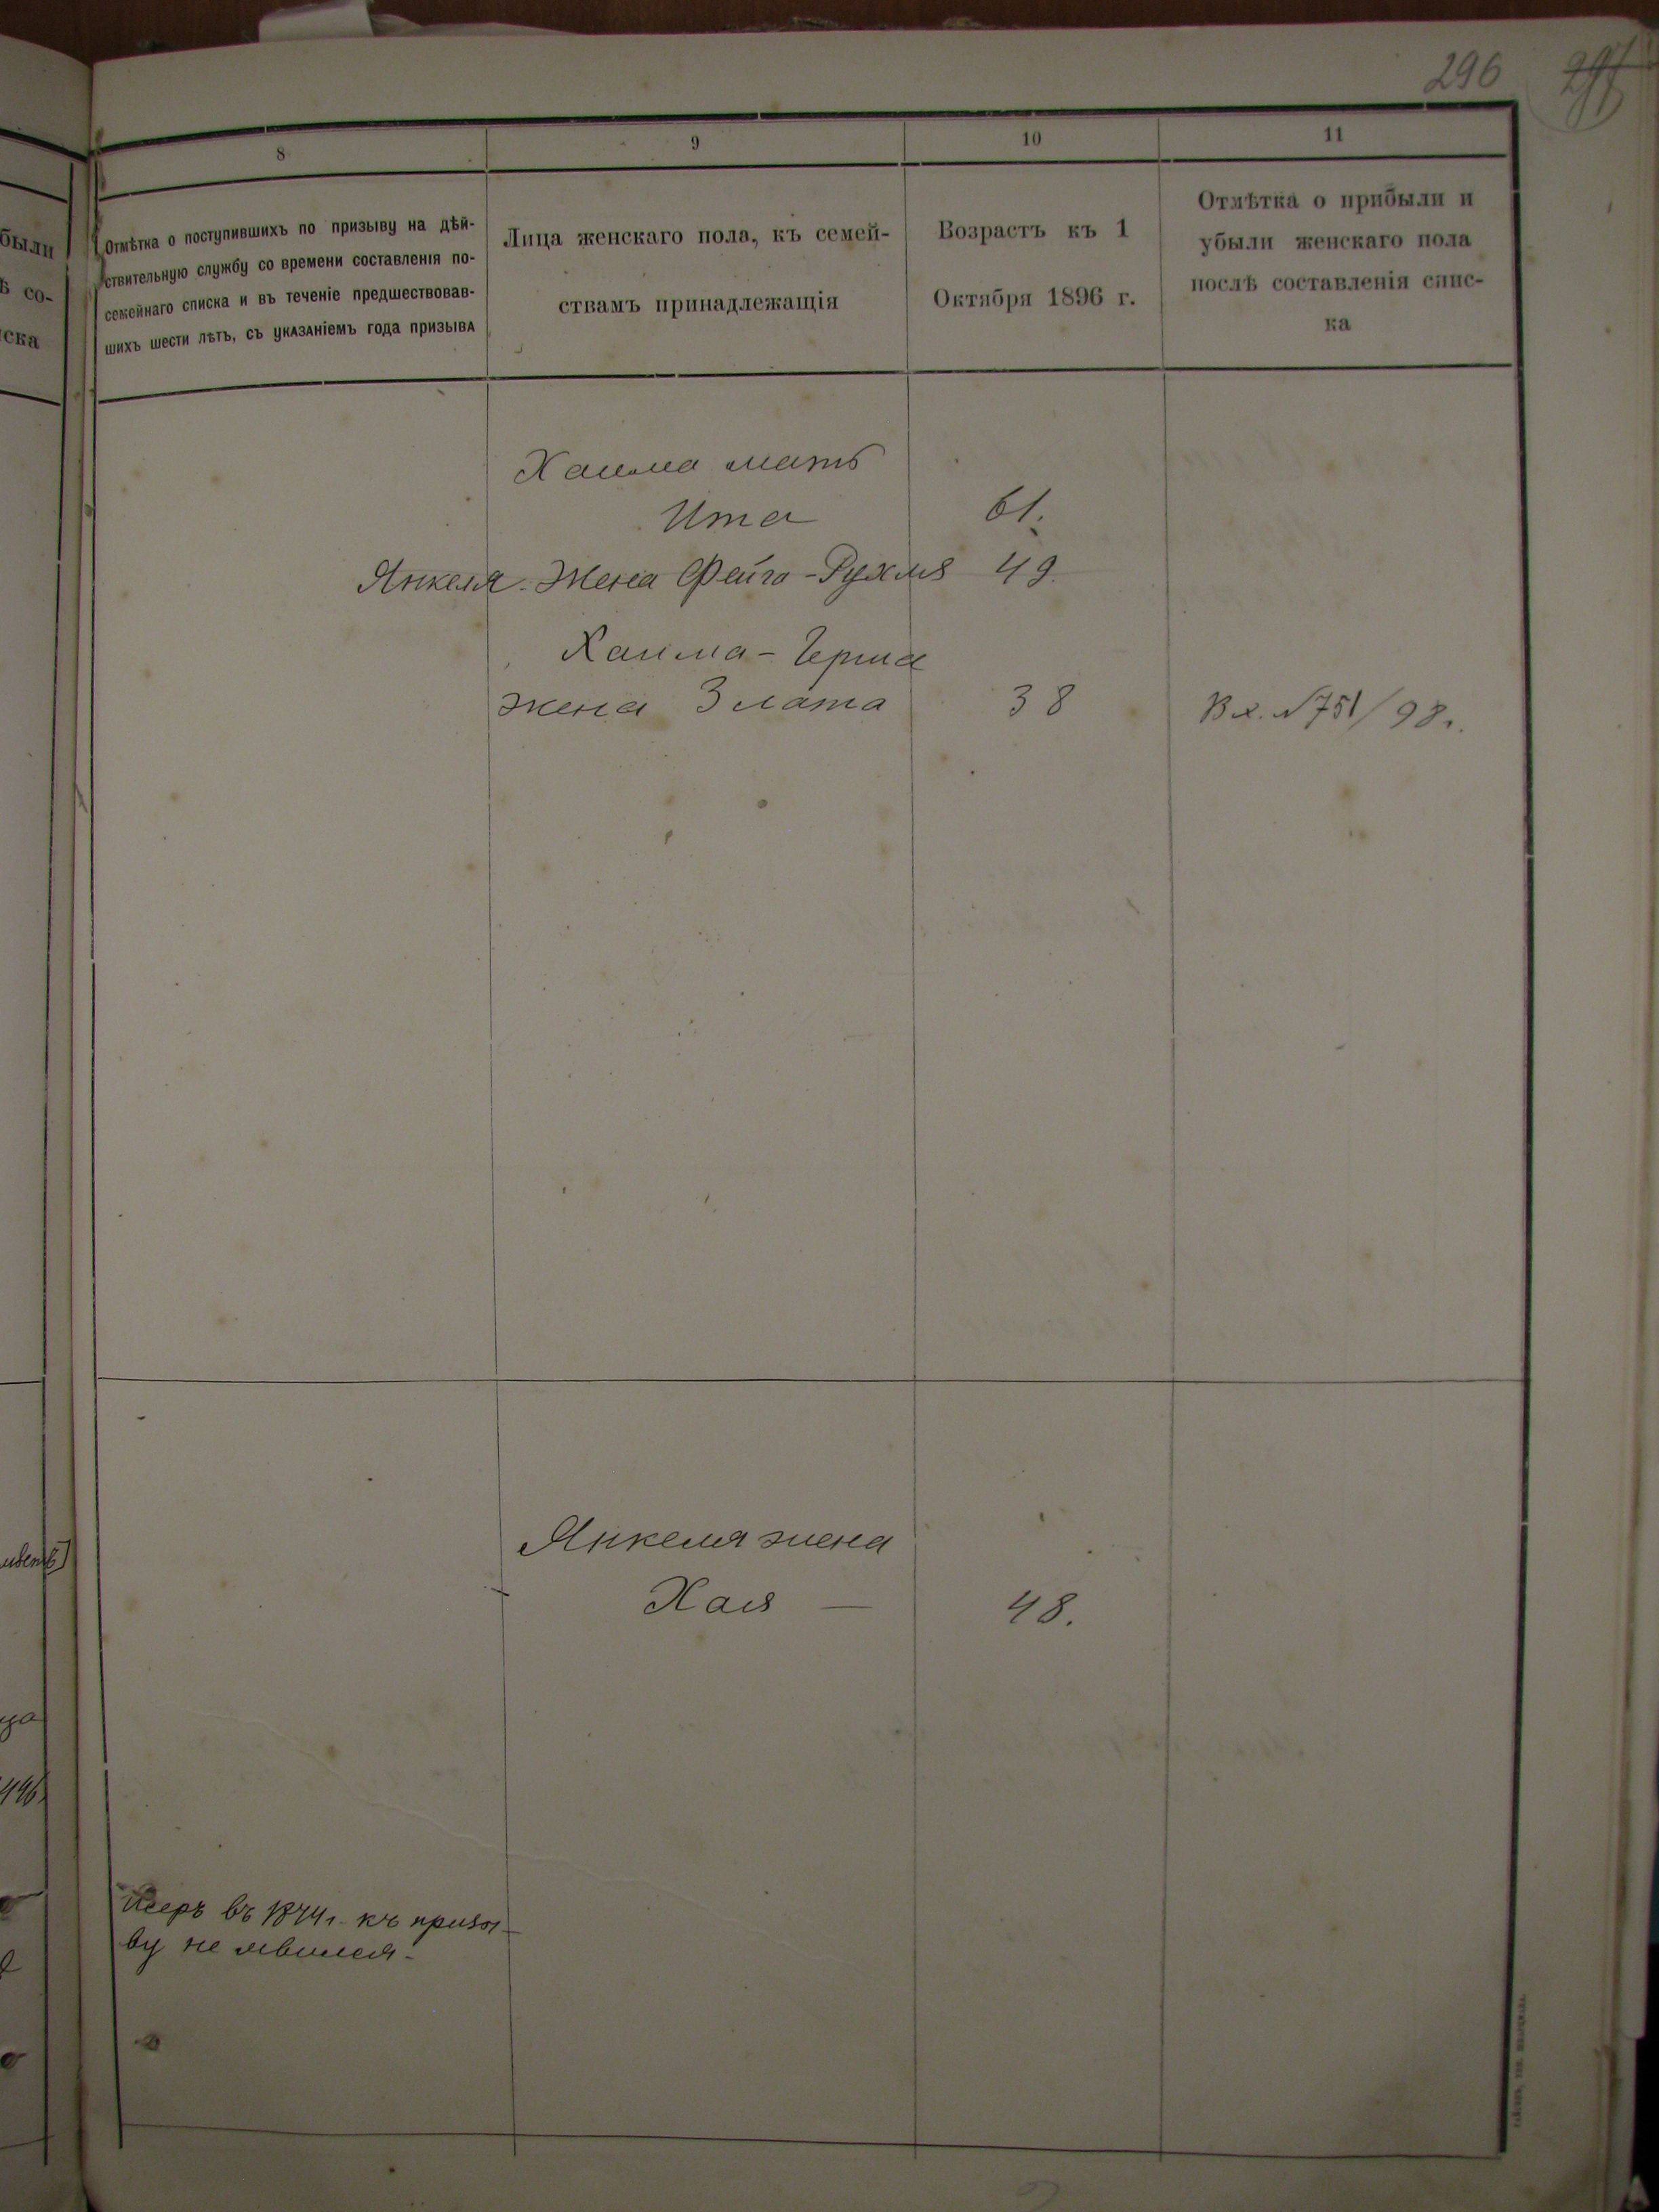 296
8
9
10
11
Отмѣтка о поступившихъ по призыву на дѣй-
ствительную службу со времени составленія по-
семейнаго списка и въ теченіе предшествовав-
шихъ шести лѣтъ, съ указаніемъ года призыва
Лица женскаго пола, къ семей-
ствамъ принадлежащія
Возрастъ къ 1
Октября 1896 г.
Отмѣтка о прибыли и
убыли женскаго пола
послѣ составленія спис-
ка
были
со-
ска
Хаима мать
Ита 61.
Янкеля. Жена Фейга-Рухля 49.
Хаима-Герша
жена Злата 38 Вх. №751/98г.
Янкеля жена
Хая — 48.
въ 1874г. къ призы-
ву не явился-